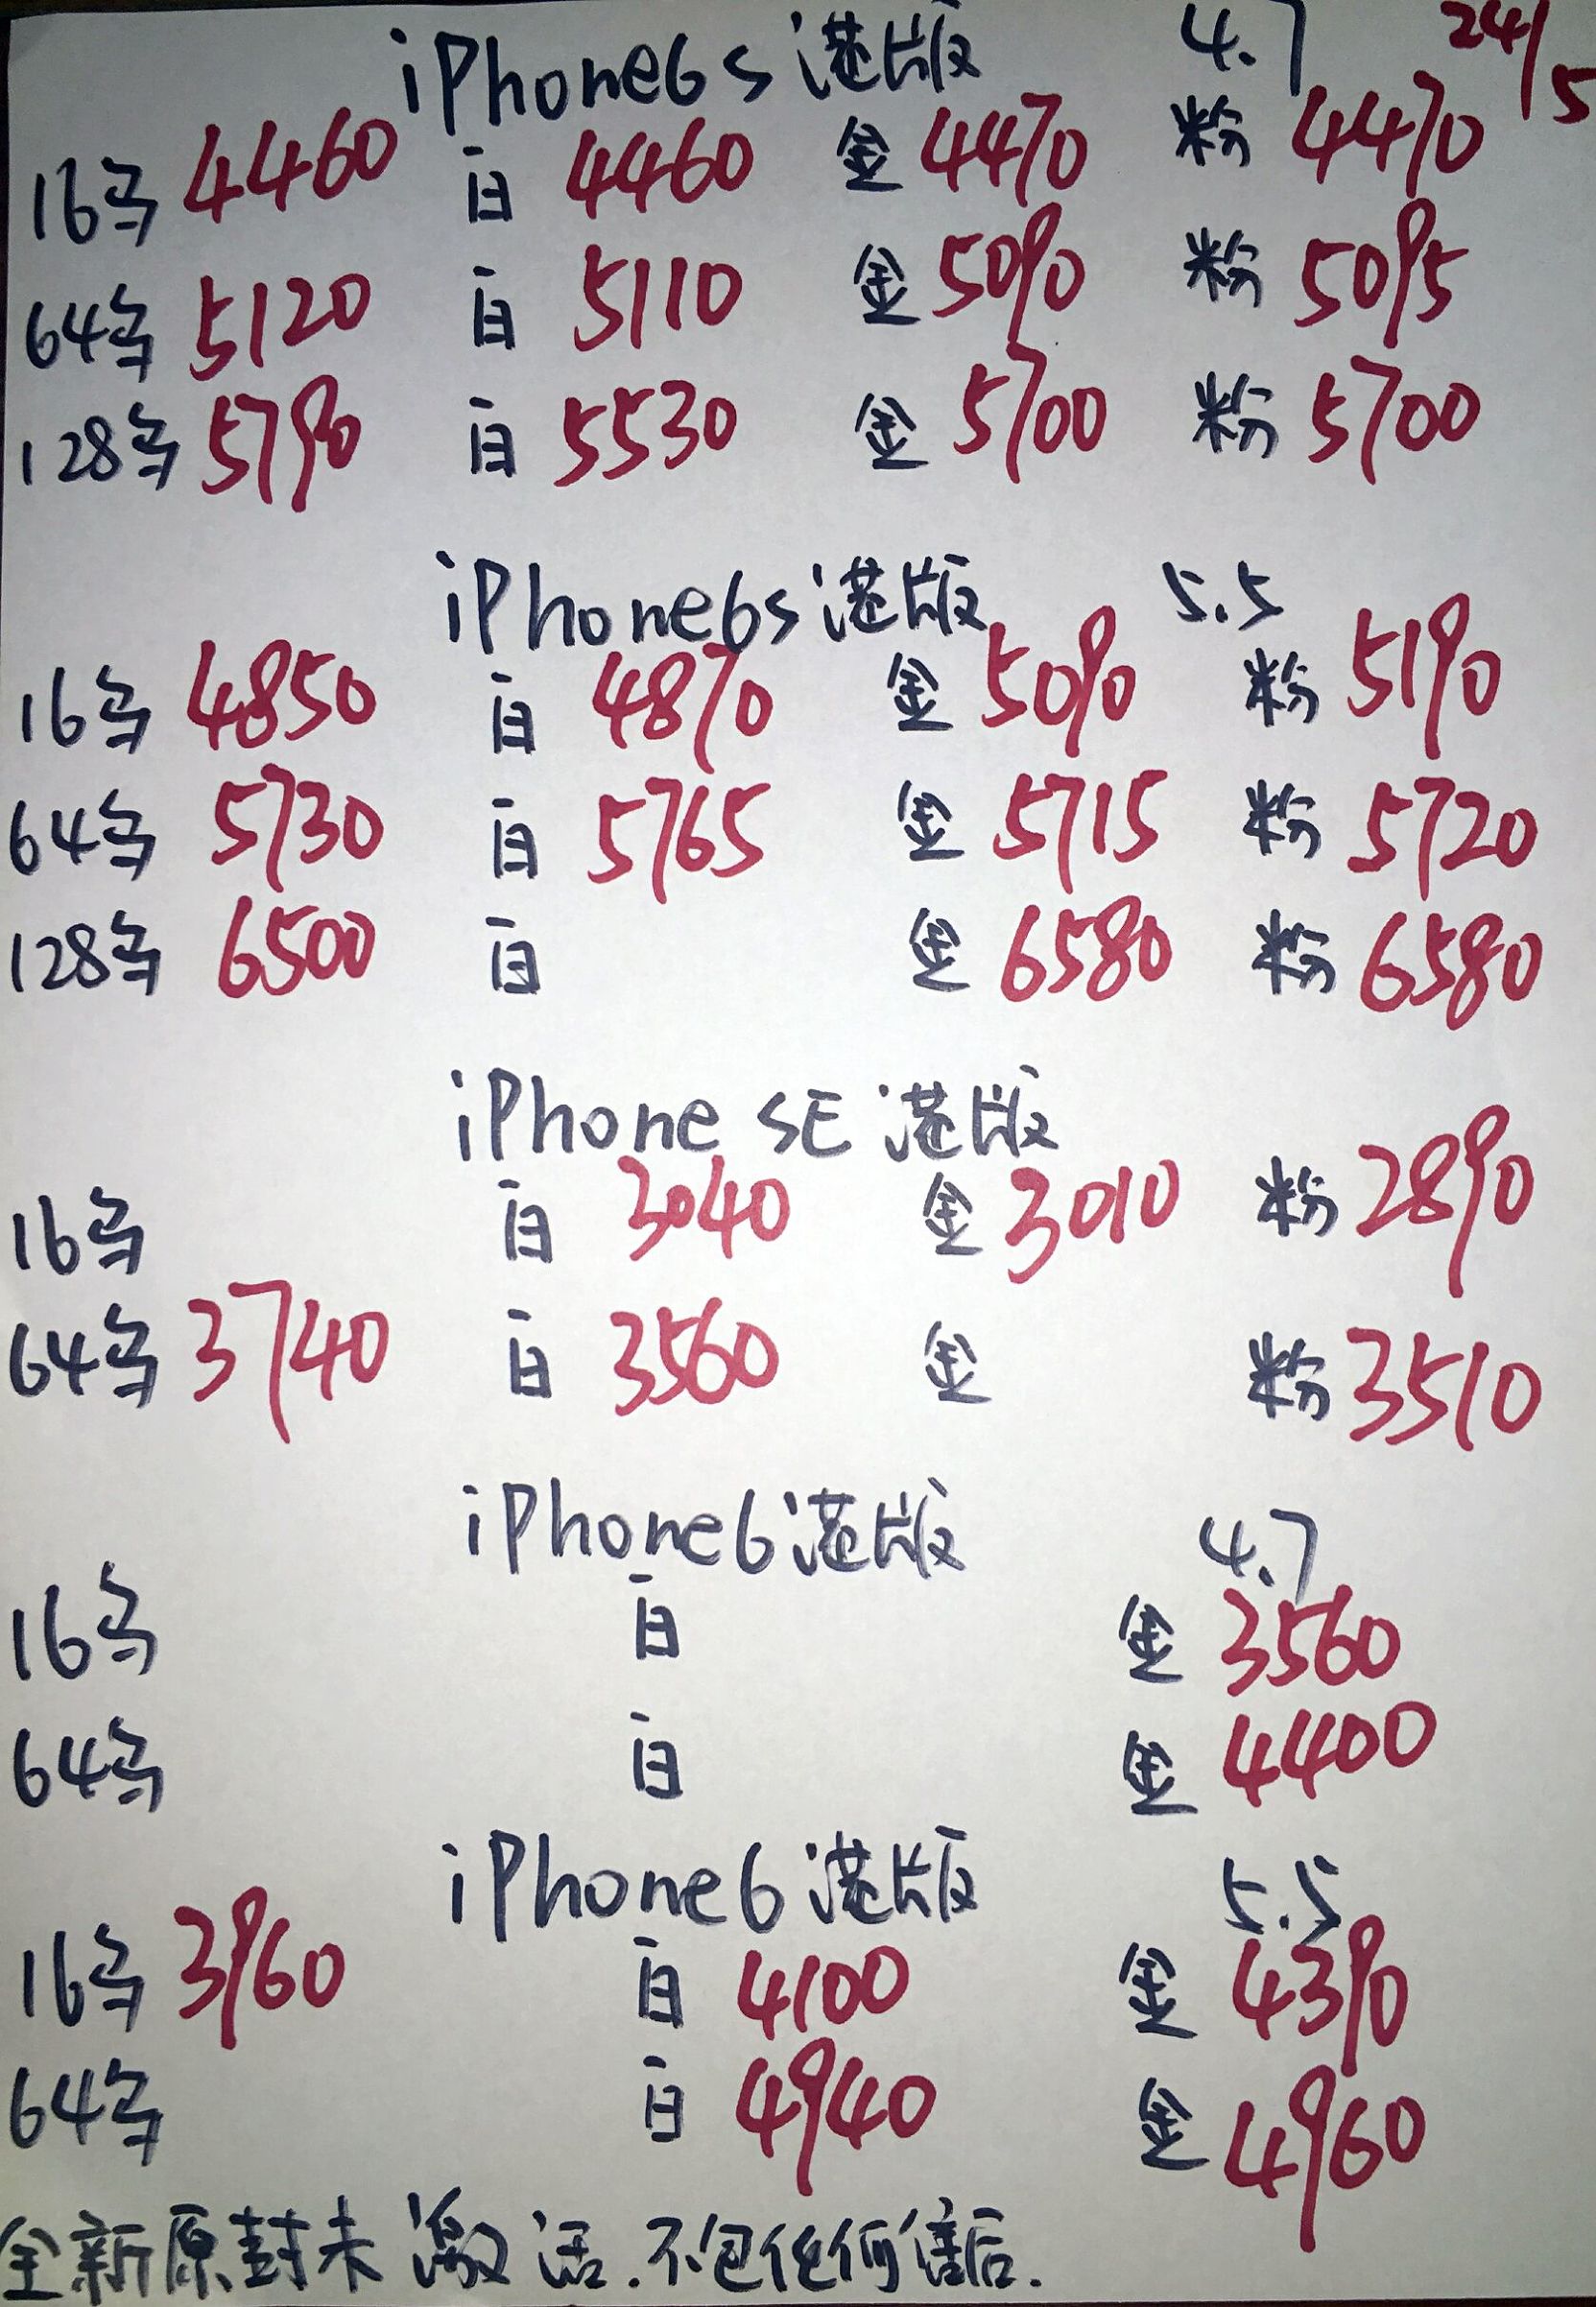 iPhone6s港版 4.7 24/5
16乌 4460 白 4460 金 4470 粉 4470
64乌 5120 白 5110 金 5090 粉 5095
128乌 5790 白 5530 金 5700 粉 5700
iPhone6s港版 5.5
16乌 4850 白 4870 金 5090 粉 5190
64乌 5730 白 5765 金 5715 粉 5720
128乌 6500 白 金 6580 粉 6580
iPhone SE 港版
16乌 白 3040 金 3010 粉 2890
64乌 3740 白 3560 金 粉 3510
iPhone6港版 4.7
16乌 白 金 3560
64乌 白 金 4400
iPhone6港版 5.5
16乌 3960 白 4100 金 4390
64乌 白 4940 金 4960
全新原封未激活.不包任何售后.